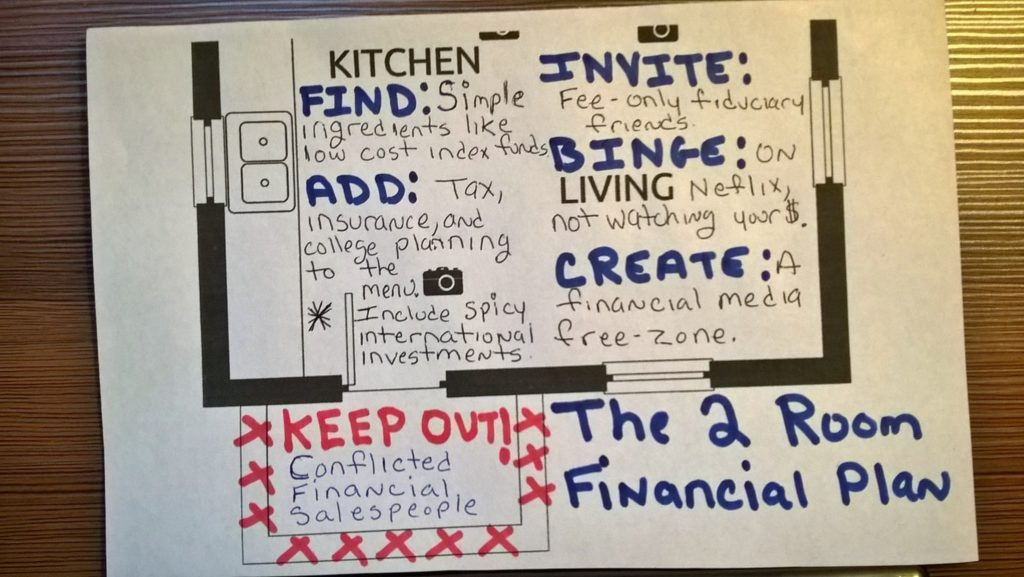 KITCHEN
FIND: Simple
ingredients like
low cost index funds
ADD: Tax,
insurance, and
college planning
to the
menu.
* Include Spicy
international
investments.
INVITE:
Fee-only fiduciary
friends.
BINGE: ON
LIVING Neflix,
not watching your $.
CREATE: A
financial media
free-zone.
KEEP OUT!
Conflicted
Financial
Salespeople
The 2 Room
Financial Plan